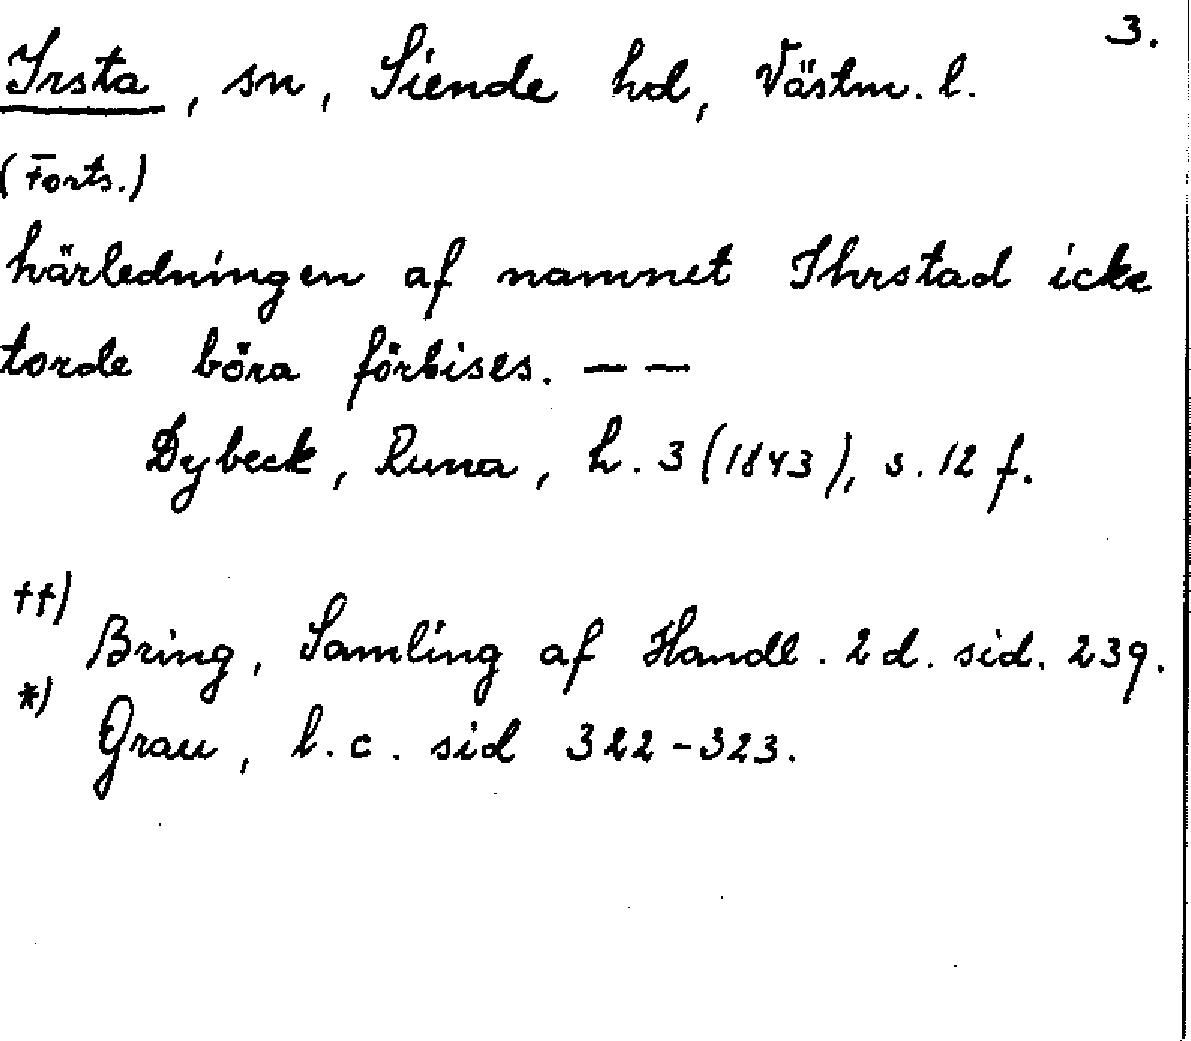 3.
Irsta, sn, Siende hd, Västm. l.
(Forts.)
härledningen af namnet Ihrstad icke
torde böra förbises. — —
Dybeck, Runa, h. 3 (1843), s. 12 f.
††) Bring, Samling af Handl. 2 d. sid. 239.
*) Grau, l. c. sid 322-323.